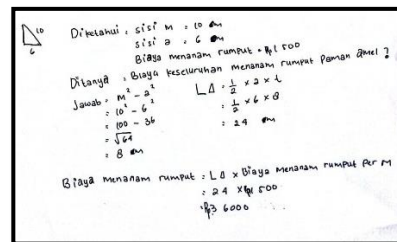 10
6
Diketahui : sisi m = 10 m
sisi a = 6 m
Biaya menanam rumput = Rp1 500
Ditanya : Biaya keseluruhan menanam rumput paman amel ?
Jawab = m² - a²
= 10² - 6²
= 100 - 36
= √64
= 8 m
L∆ = 1/2 × a × t
= 1/2 × 6 × 8
= 24 m
Biaya menanam rumput : L∆ × Biaya menanam rumput Per M
: 24 × Rp1 500
: Rp3 6000